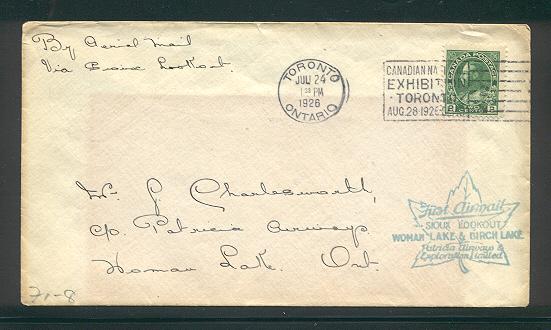 By Aerial Mail
Via Sioux Lookout.
TORONTO
JUL 24
PM
1926
ONTARIO
CANADIAN NA
EXHIBIT
TORONT
AUG. 28 1926
CANADA POSTAGE
2 2
Mr J. Charlesworth,
c/o Patricia Airways
Woman Lake. Ont.
First Airmail
SIOUX LOOKOUT
WOMAN LAKE & BIRCH LAKE
Patricia Airways &
Exploration Limited
71-8